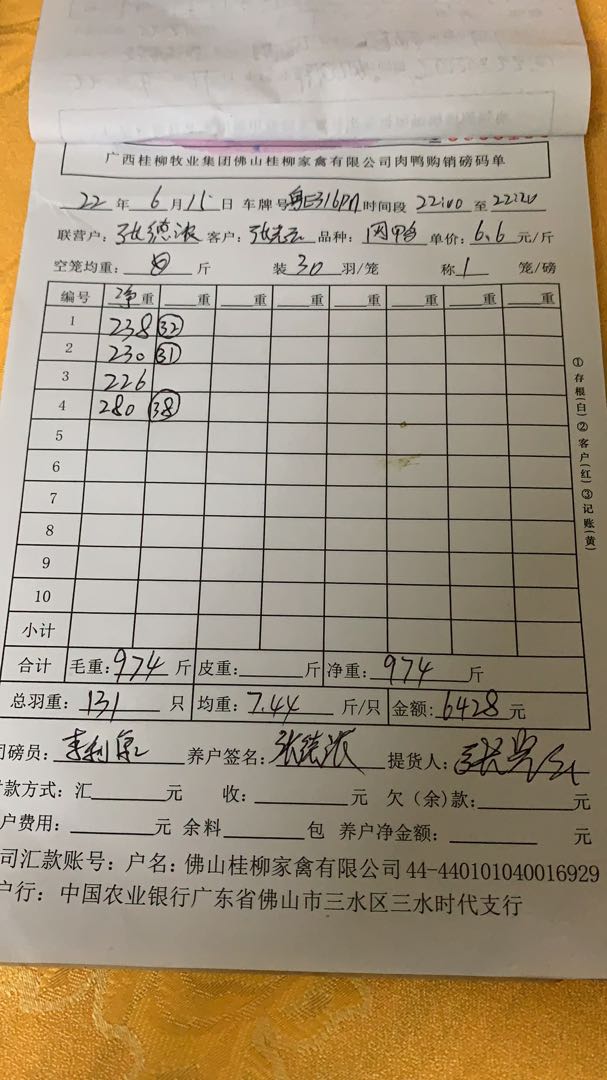 广西桂柳牧业集团佛山桂柳家禽有限公司肉鸭购销磅码单
22 年 6 月 15 日 车牌号 时间段 22:00 至 22:20
联营户: 张德浓 客户: 品种: 肉鸭 单价: 6.6 元/斤
空笼均重: 斤 装 30 羽/笼 称 1 笼/磅
编号 净重 重 重 重 重 重 重 重
1 238 32
2 230 31
3 226
4 280 38
5
6
7
8
9
10
小计
合计 毛重: 974 斤 皮重: 斤 净重: 974 斤
总羽重: 131 只 均重: 7.44 斤/只 金额: 6428 元
磅员: 养户签名: 张德浓 提货人:
款方式: 汇 元 收: 元 欠(余)款: 元
户费用: 元 余料 包 养户净金额: 元
司汇款账号: 户名: 佛山桂柳家禽有限公司 44-440101040016929
户行: 中国农业银行广东省佛山市三水区三水时代支行
①存根(白)②客户(红)③记账(黄)